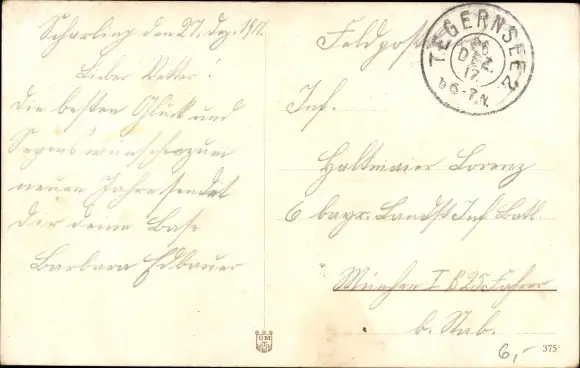 Scharling den 27. Dez. 1917.
Lieber Vetter!
Die besten Glück und
Segenswünsche zum
neuen Jahre sendet
Dir deine Base
Barbara Edbauer
Feldpost
TEGERNSEE 2
26
DEZ.
17.
6-7 N.
Inf.
Haltmaier Lorenz
6 bayr. Landst Inf Batl
München I B 25 Fahrer
b. Stab.
6,-
375